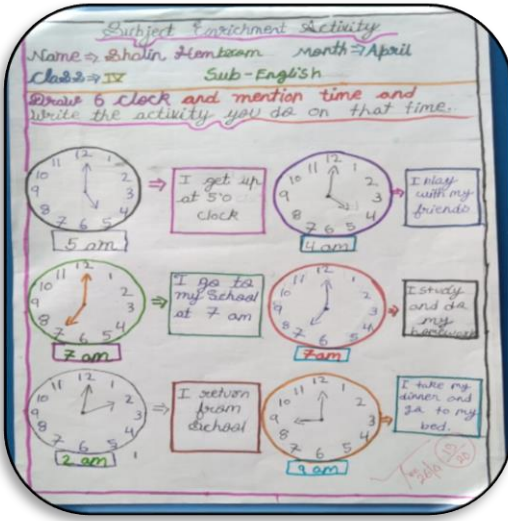 Subject Enrichment Activity
Name ⇒ Shalin Hembrom Month ⇒ April
Class ⇒ IV Sub - English
Draw 6 clock and mention time and
write the activity you do on that time.
12 1 2 3 4 5 6 7 8 9 10 11
5 am
I get up
at 5'0
clock
12 1 2 3 4 5 6 7 8 9 10 11
4 am
I play
with my
friends
12 1 2 3 4 5 6 7 8 9 10 11
7 am
I go to
my School
at 7 am
12 1 2 3 4 5 6 7 8 9 10 11
7am
I study
and do
my
homework
12 1 2 3 4 5 6 7 8 9 10 11
2 am
I return
from
School
12 1 2 3 4 5 6 7 8 9 10 11
9 am
I take my
dinner and
go to my
bed.